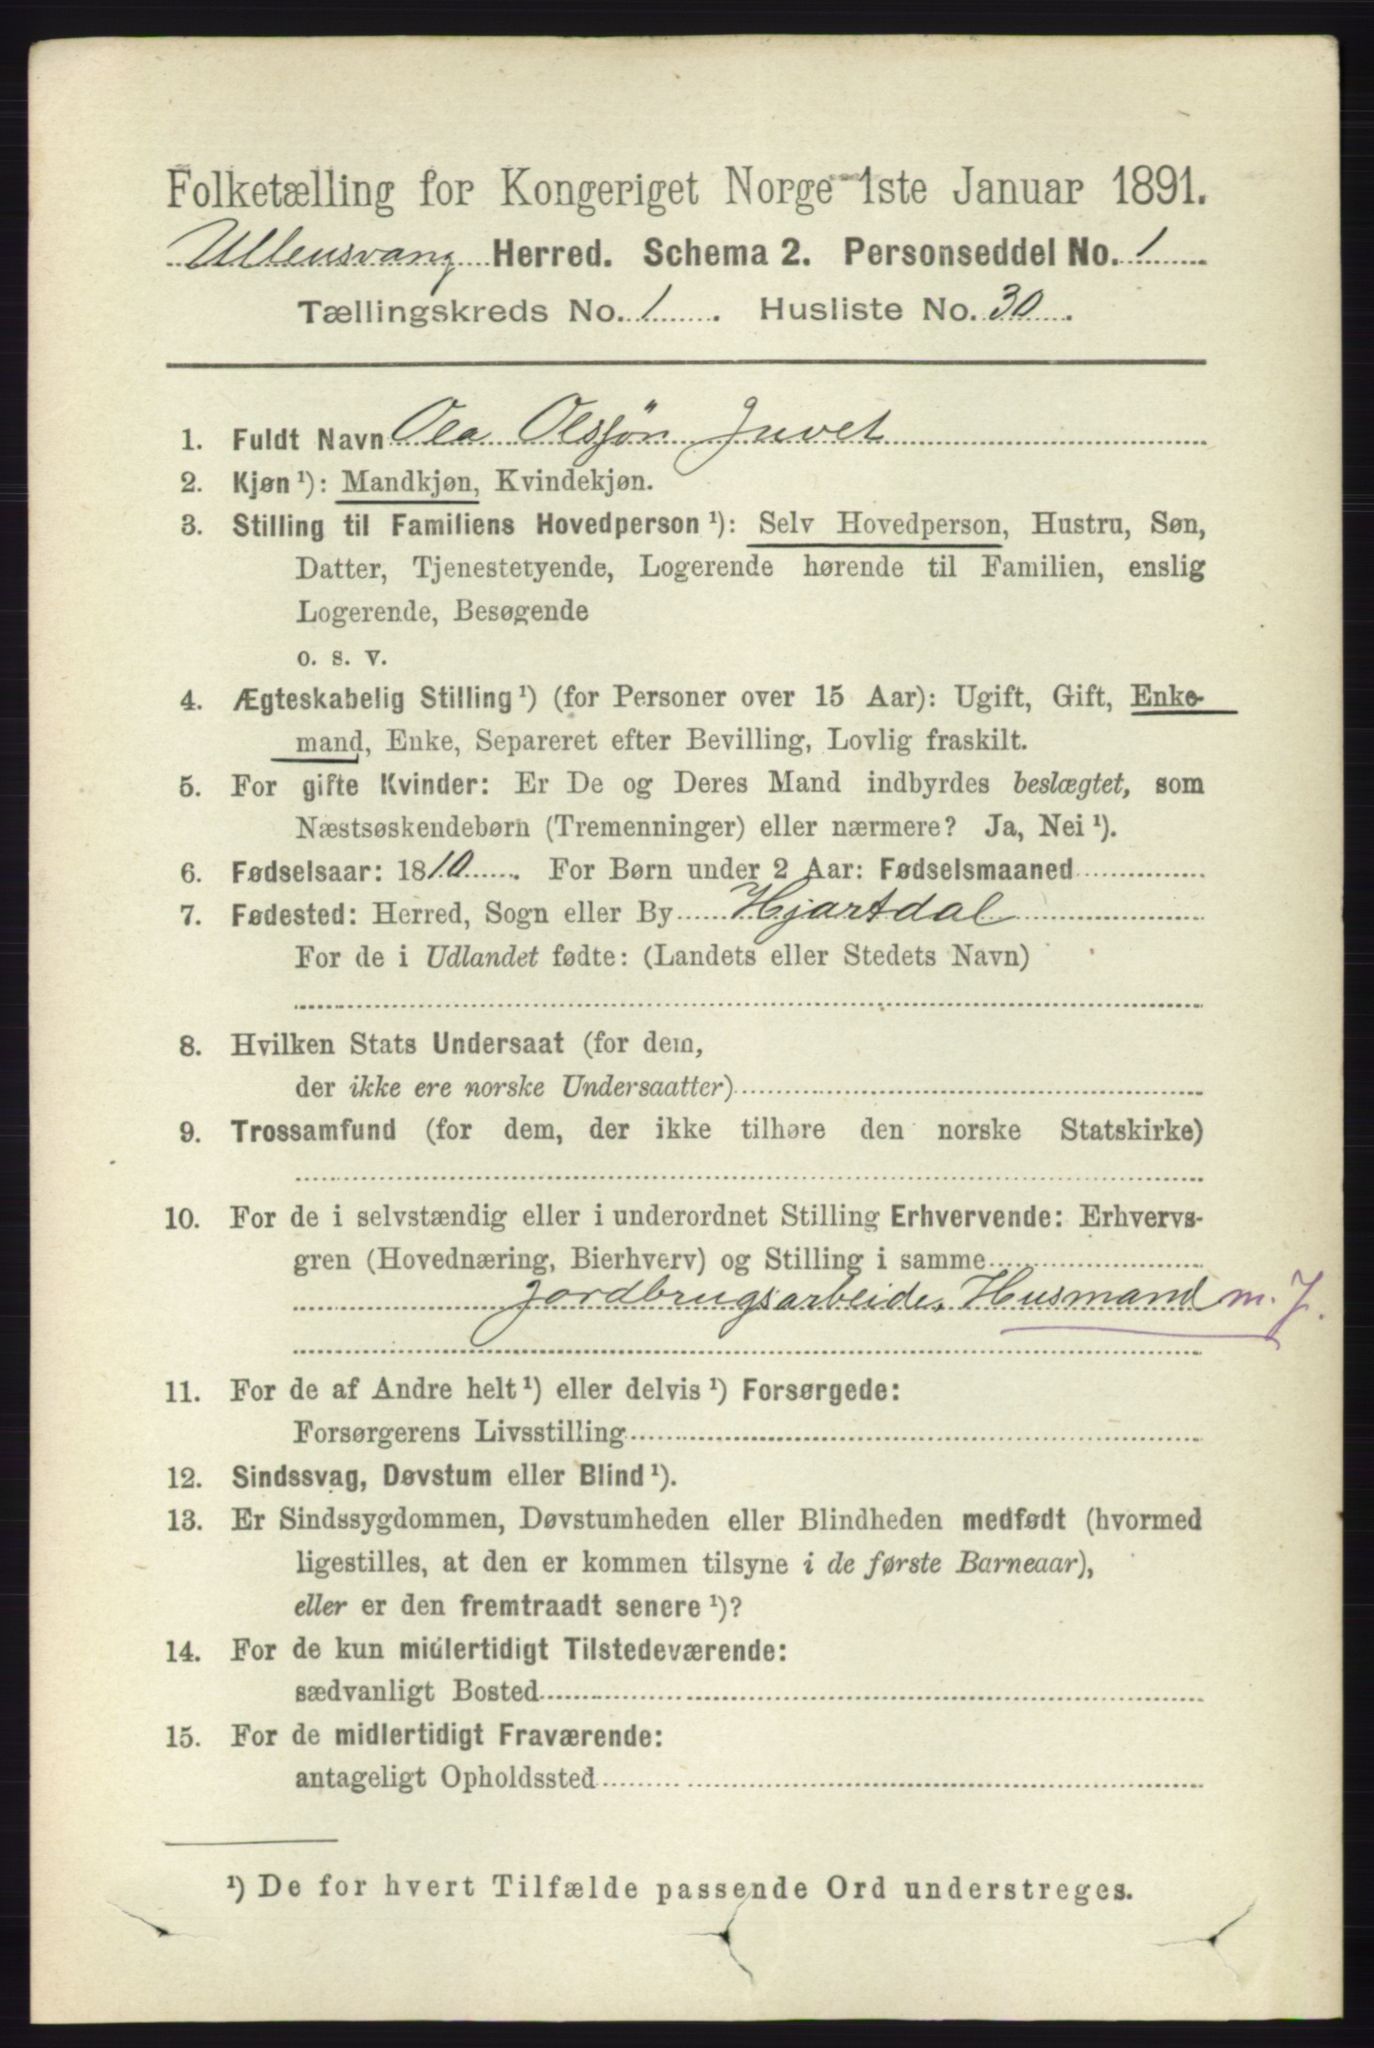 Folketælling for Kongeriget Norge 1ste Januar 1891.
Ullensvang Herred. Schema 2. Personseddel No. 1
Tællingskreds No. 1. Husliste No. 30.
1. Fuldt Navn Ola Olssøn Juvet
2. Kjøn ¹): Mandkjøn, Kvindekjøn.
3. Stilling til Familiens Hovedperson ¹): Selv Hovedperson, Hustru, Søn,
Datter, Tjenestetyende, Logerende hørende til Familien, enslig
Logerende, Besøgende
o. s. v.
4. Ægteskabelig Stilling ¹) (for Personer over 15 Aar): Ugift, Gift, Enke-
mand, Enke, Separeret efter Bevilling, Lovlig fraskilt.
5. For gifte Kvinder: Er De og Deres Mand indbyrdes beslægtet, som
Næstsøskendebørn (Tremenninger) eller nærmere? Ja, Nei ¹).
6. Fødselsaar: 1810. For Børn under 2 Aar: Fødselsmaaned
7. Fødested: Herred, Sogn eller By Hjartdal
For de i Udlandet fødte: (Landets eller Stedets Navn)
8. Hvilken Stats Undersaat (for dem,
der ikke ere norske Undersaatter)
9. Trossamfund (for dem, der ikke tilhøre den norske Statskirke)
10. For de i selvstændig eller i underordnet Stilling Erhvervende: Erhvervs-
gren (Hovednæring, Bierhverv) og Stilling i samme
Jordbrugsarbeide, Husmand m. J.
11. For de af Andre helt ¹) eller delvis ¹) Forsørgede:
Forsørgerens Livsstilling
12. Sindssvag, Døvstum eller Blind ¹).
13. Er Sindssygdommen, Døvstumheden eller Blindheden medfødt (hvormed
ligestilles, at den er kommen tilsyne i de første Barneaar),
eller er den fremtraadt senere ¹)?
14. For de kun midlertidigt Tilstedeværende:
sædvanligt Bosted
15. For de midlertidigt Fraværende:
antageligt Opholdssted
¹) De for hvert Tilfælde passende Ord understreges.